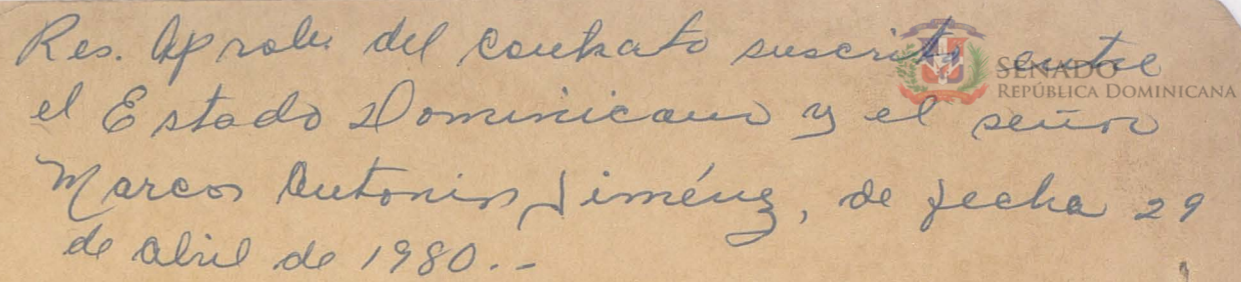 Res. Aprob. del contrato suscrito entre
el Estado Dominicano y el señor
Marcos Antonio Jiménez, de fecha 29
de abril de 1980.-
SENADO
REPÚBLICA DOMINICANA